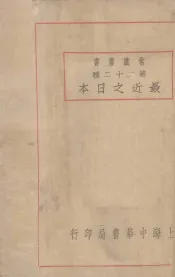 常識叢書
第二十二種
最近之日本
上海中華書局印行